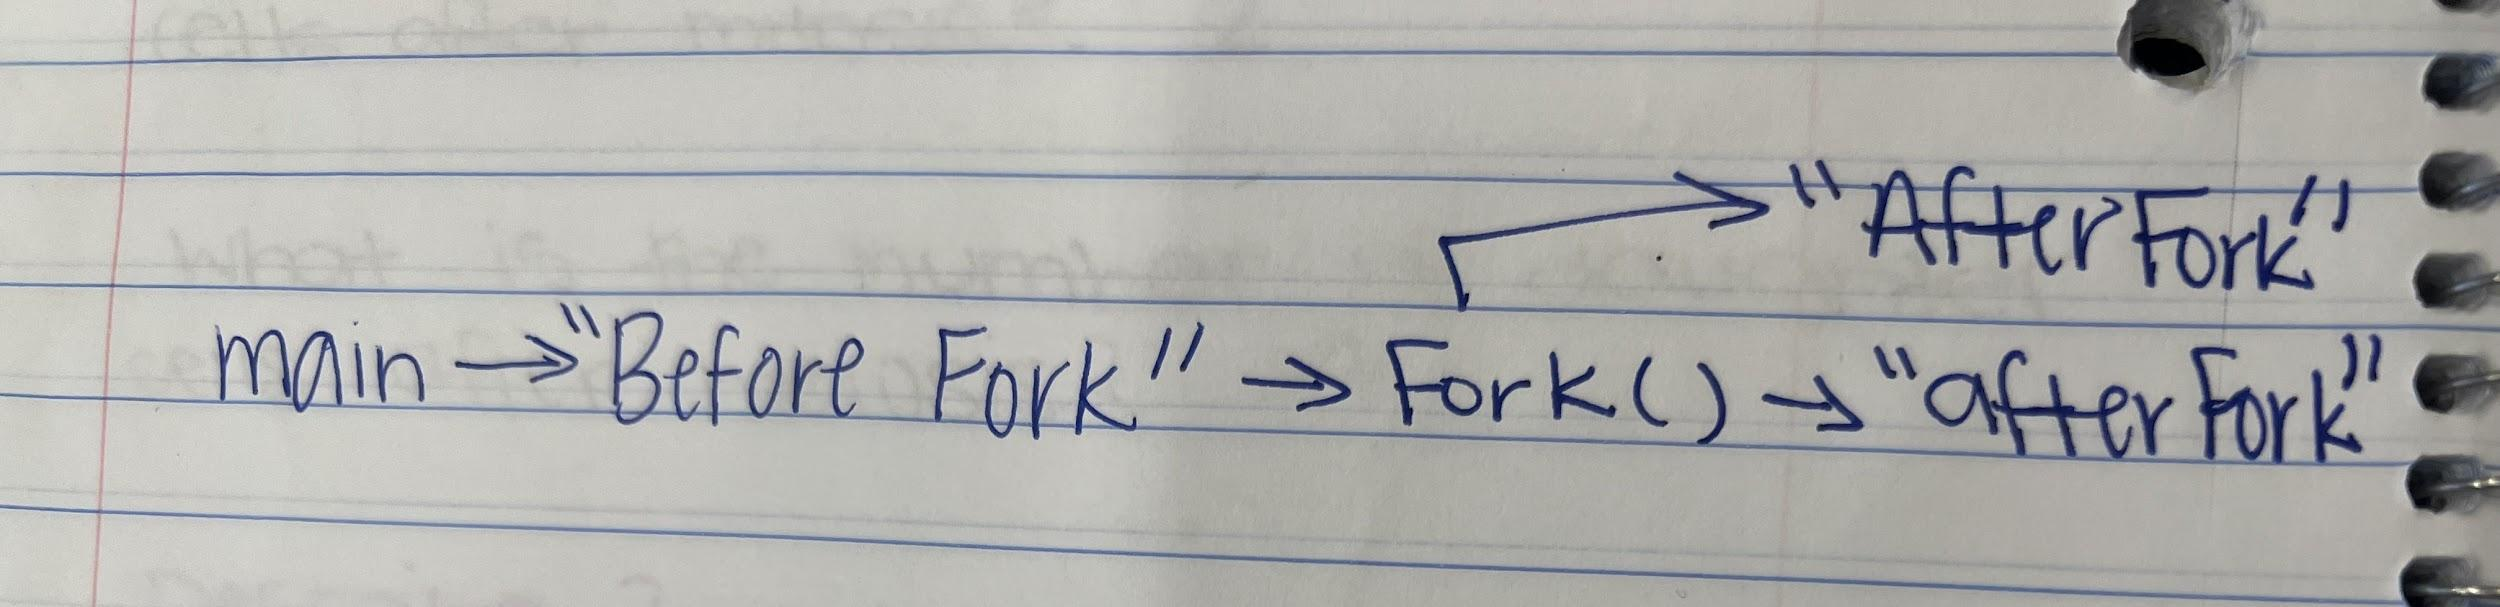 "After Fork"
main → "Before Fork" → Fork() → "after Fork"